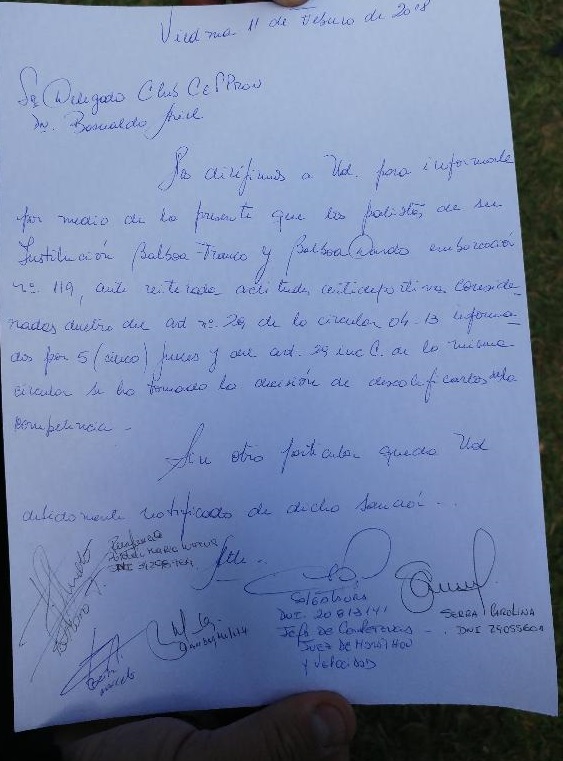 Viedma 11 de Febrero de 2018
Sr Delegado Club CEPRON
Dn. Basualdo Ariel
Nos dirigimos a Ud. para informarle
por medio de la presente que los palistas de su
Institución Balboa Franco y Balboa Dardo embarcación
nº. 119, ante reiteradas actitudes antideportivas conside-
radas dentro del art nº. 29 de la circular 04-13 informa-
dos por 5 (cinco) jueces y del art. 29 inc C. de la misma
circular se ha tomado la decisión de descalificarlos de la
competencia -
Sin otro particular queda Ud
debidamente notificado de dicha sanción -.
Atte -
DNI
Jefe de Conferencias
Juez de
y Velocidad
SERRA CAROLINA
DNI 29055601